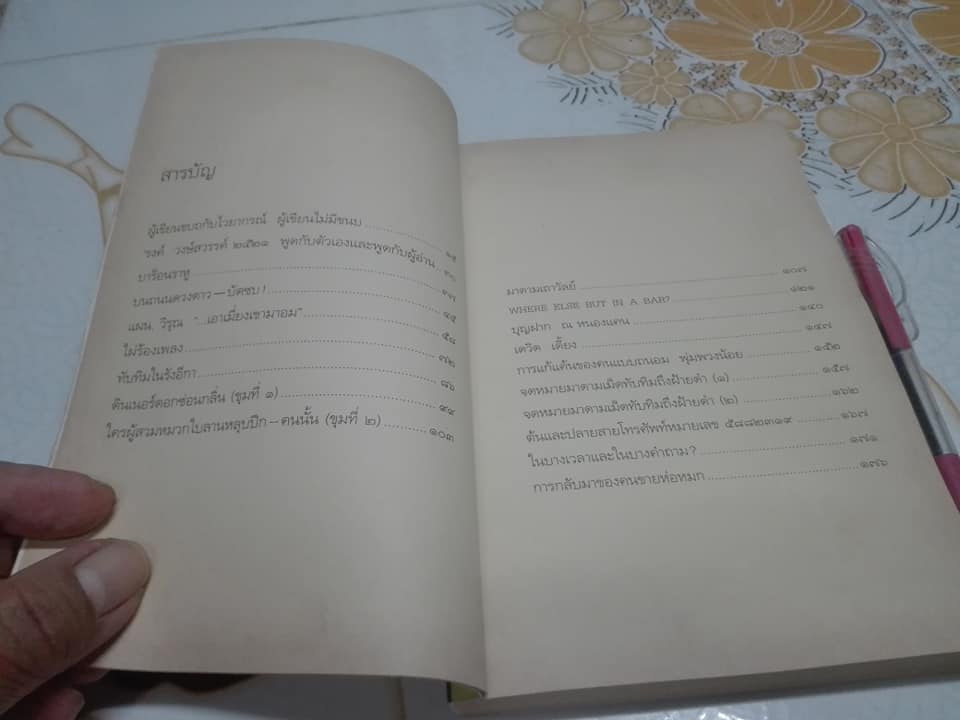 สารบัญ
ผู้เขียนขบถกับไวยากรณ์ ผู้เขียนไม่มีขนบ
รงค์ วงษ์สวรรค์ ๒๕๒๑ พูดกับตัวเองและพูดกับผู้อ่าน ๓๐
บาร์อนราหู
บนถนนดวงดาว—บัดซบ!
แผน. วิรุณ "...เอาเมี่ยงเขามาอม" ๕๘
ไม่ร้องเพลง
ทับทิมในรังอีกา ๘๖
ดินเนอร์ดอกซ่อนกลิ่น (ขุมที่ ๑)
ใครผู้สวมหมวกใบลานหลุบปีก—คนนั้น (ขุมที่ ๒) ๑๐๓
มาดามเถาวัลย์ ๑๐๗
WHERE ELSE BUT IN A BAR? ๑๒๑
บุญฝาก ณ หนองแคน ๑๔๐
เดวิด เตี้ยง ๑๔๗
การแก้แค้นของคนแบบถนอม พุ่มพวงน้อย ๑๕๒
จดหมายมาดามเม็ดทับทิมถึงฝ้ายคำ (๑) ๑๕๗
จดหมายมาดามเม็ดทับทิมถึงฝ้ายคำ (๒) ๑๖๒
ต้นและปลายสายโทรศัพท์หมายเลข ๕๘๘๒๓๑๙ ๑๖๗
ในบางเวลาและในบางคำถาม? ๑๗๑
การกลับมาของคนขายห่อหมก ๑๗๖